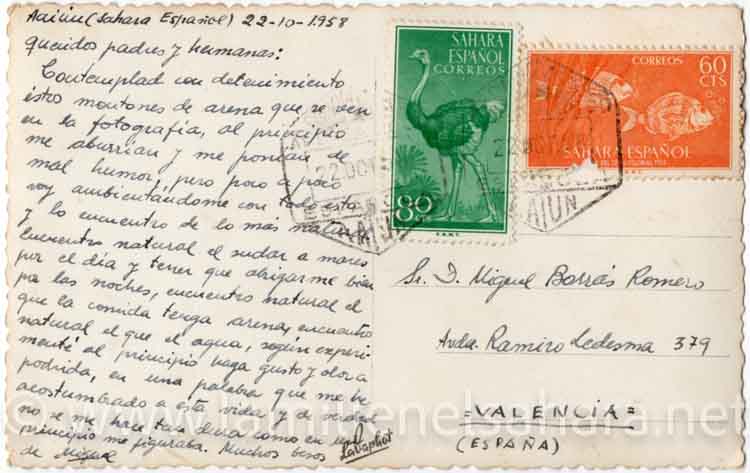 Aaiún (Sahara Español) 22-10-1958
queridos padres y hermanas:
Contemplad con detenimiento
estos montones de arena que se ven
en la fotografía, al principio
me aburrían y me ponían de
mal humor, pero poco a poco
voy ambientándome con todo esto
y lo encuentro de lo más natural
encuentro natural el sudar a mares
por el día y tener que abrigarme bien
por las noches, encuentro natural el
que la comida tenga arena, encuentro
natural el que el agua, según experi-
menté al principio haga gusto y olor a
podrida, en una palabra que me he
acostumbrado a esta vida y de verdad
no se me hace tan dura como en un
principio me figuraba. Muchos besos
de Miguel
SAHARA
ESPAÑOL
CORREOS
80
F.N.M.T.
CORREOS
60
CTS
SAHARA ESPAÑOL
22 OCT
AIUN
AIUN
Sr. D. Miguel Borrás Romero
Avda. Ramiro Ledesma 379
=VALENCIA=
(ESPAÑA)
© www.lamilienelsahara.net